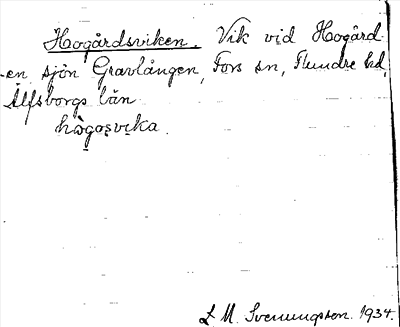 Hogårdsviken. Vik vid Hogård
-en sjön Gravlången, Fors sn, Flundre hd,
Älfsborgs län
hò̤gos̭vi̭ka
L. M. Svenungsson. 1934.